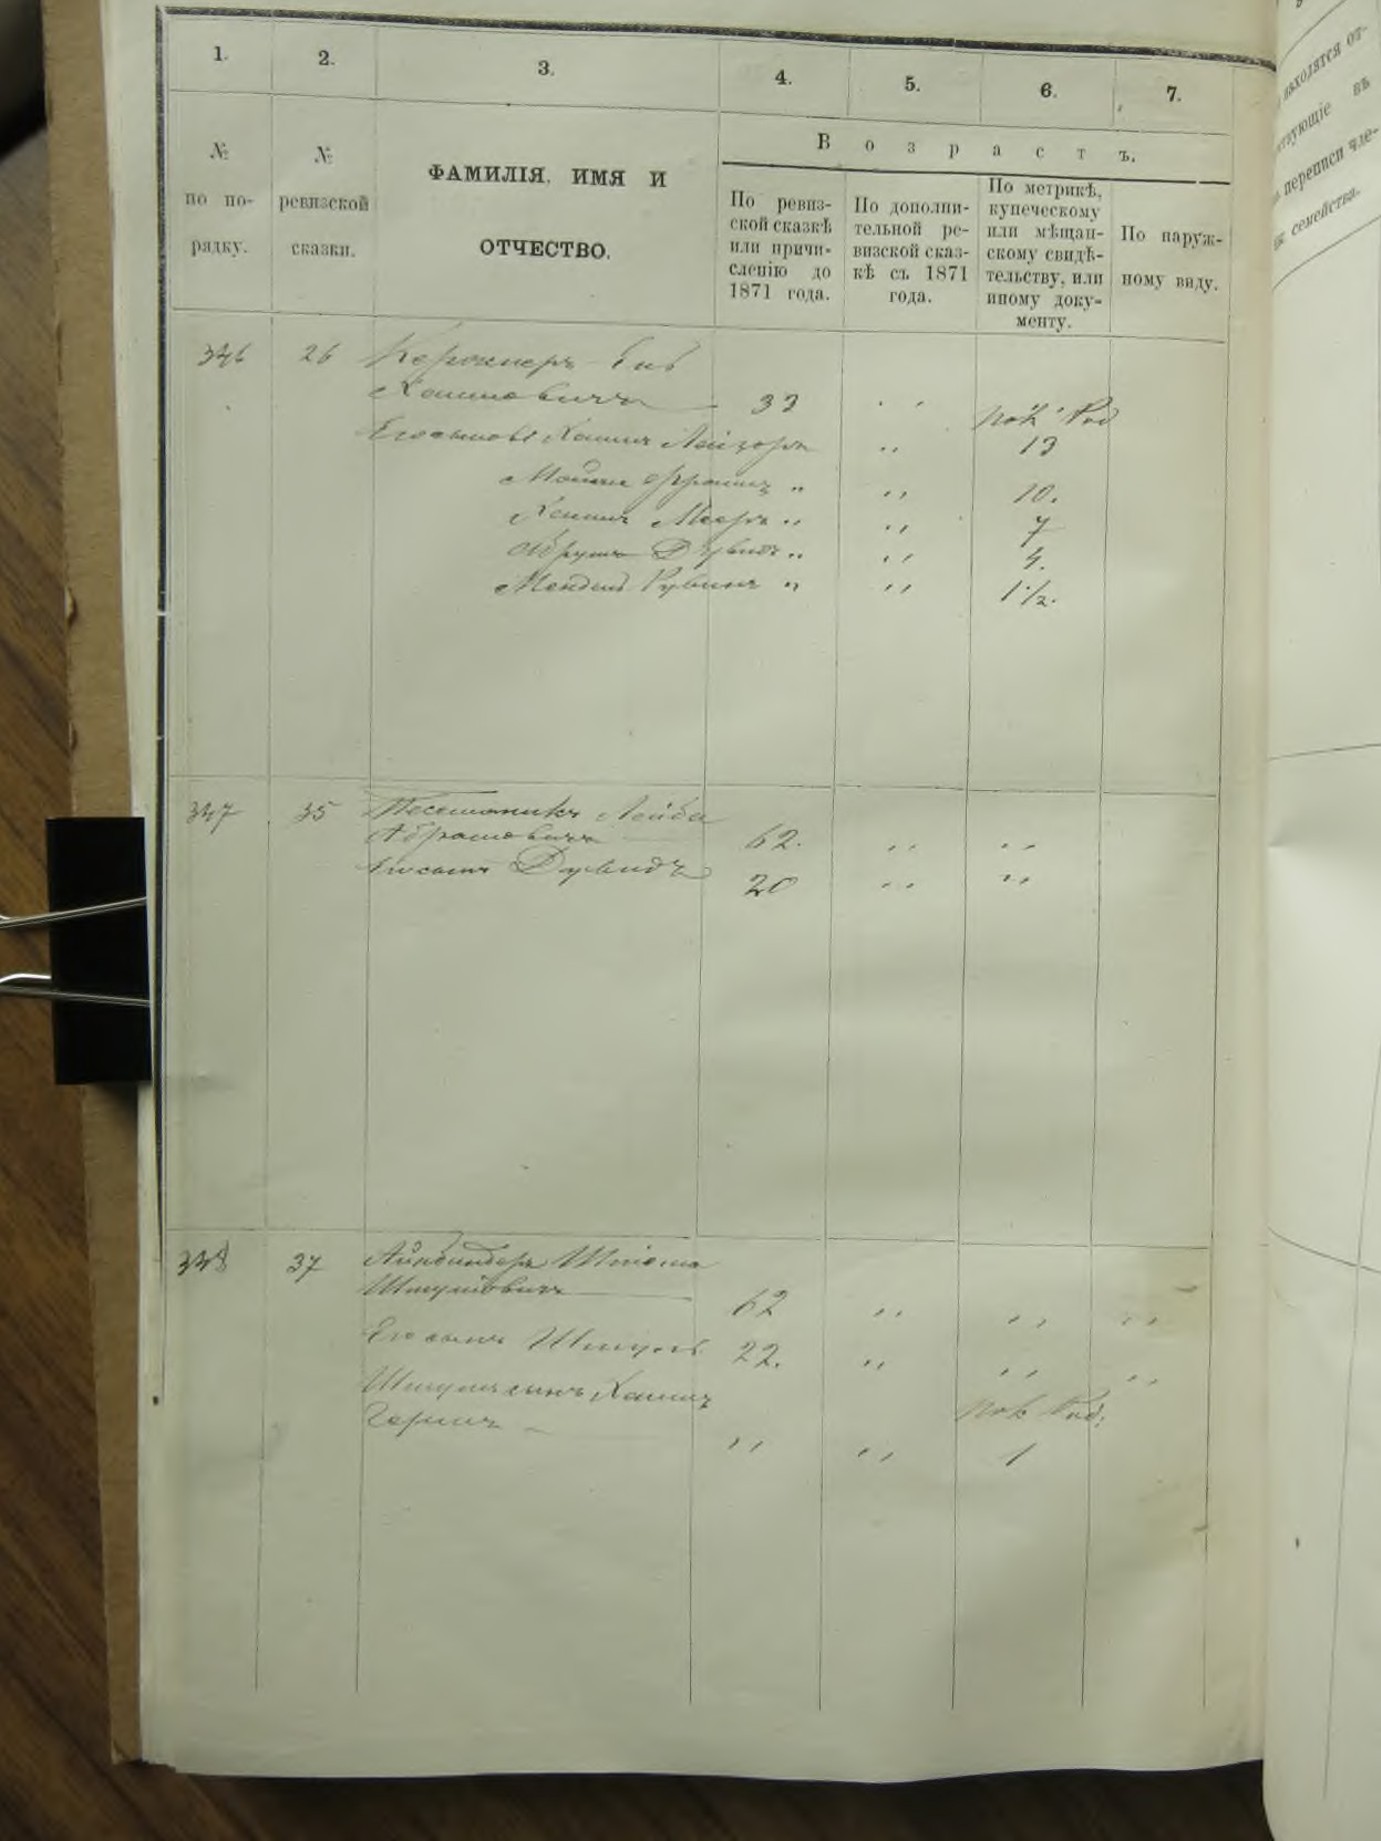 1.
2.
3.
4.
5.
6.
7.
№
по по-
рядку.
№
ревизской
сказки.
ФАМИЛІЯ, ИМЯ И
ОТЧЕСТВО.
Возрастъ.
По ревиз-
ской сказкѣ
или причи-
сленію до
1871 года.
По дополни-
тельной ре-
визской сказ-
кѣ съ 1871
года.
По метрикѣ,
купеческому
или мѣщан-
скому свидѣ-
тельству, или
иному доку-
менту.
По наруж-
ному виду.
346 26
Хаимовичъ 33 " "
Его сыновья Хаимъ Лейзоръ " 13
" " 10.
Хаимъ Мееръ " " 7
Абрумъ Дувидъ " " 4.
Мендель Рувинъ " " 1 1/2.
347 35 Лейба
Абрамовичъ 62. " "
Его сынъ Дувидъ 20 " "
348 37
Шмулёвичъ 62 " " "
Его сынъ Шмуль 22. " " "
Шмуля сынъ Хаимъ
Гершъ " " 1
находятся от-
ствующіе въ
переписи чле-
семейства.